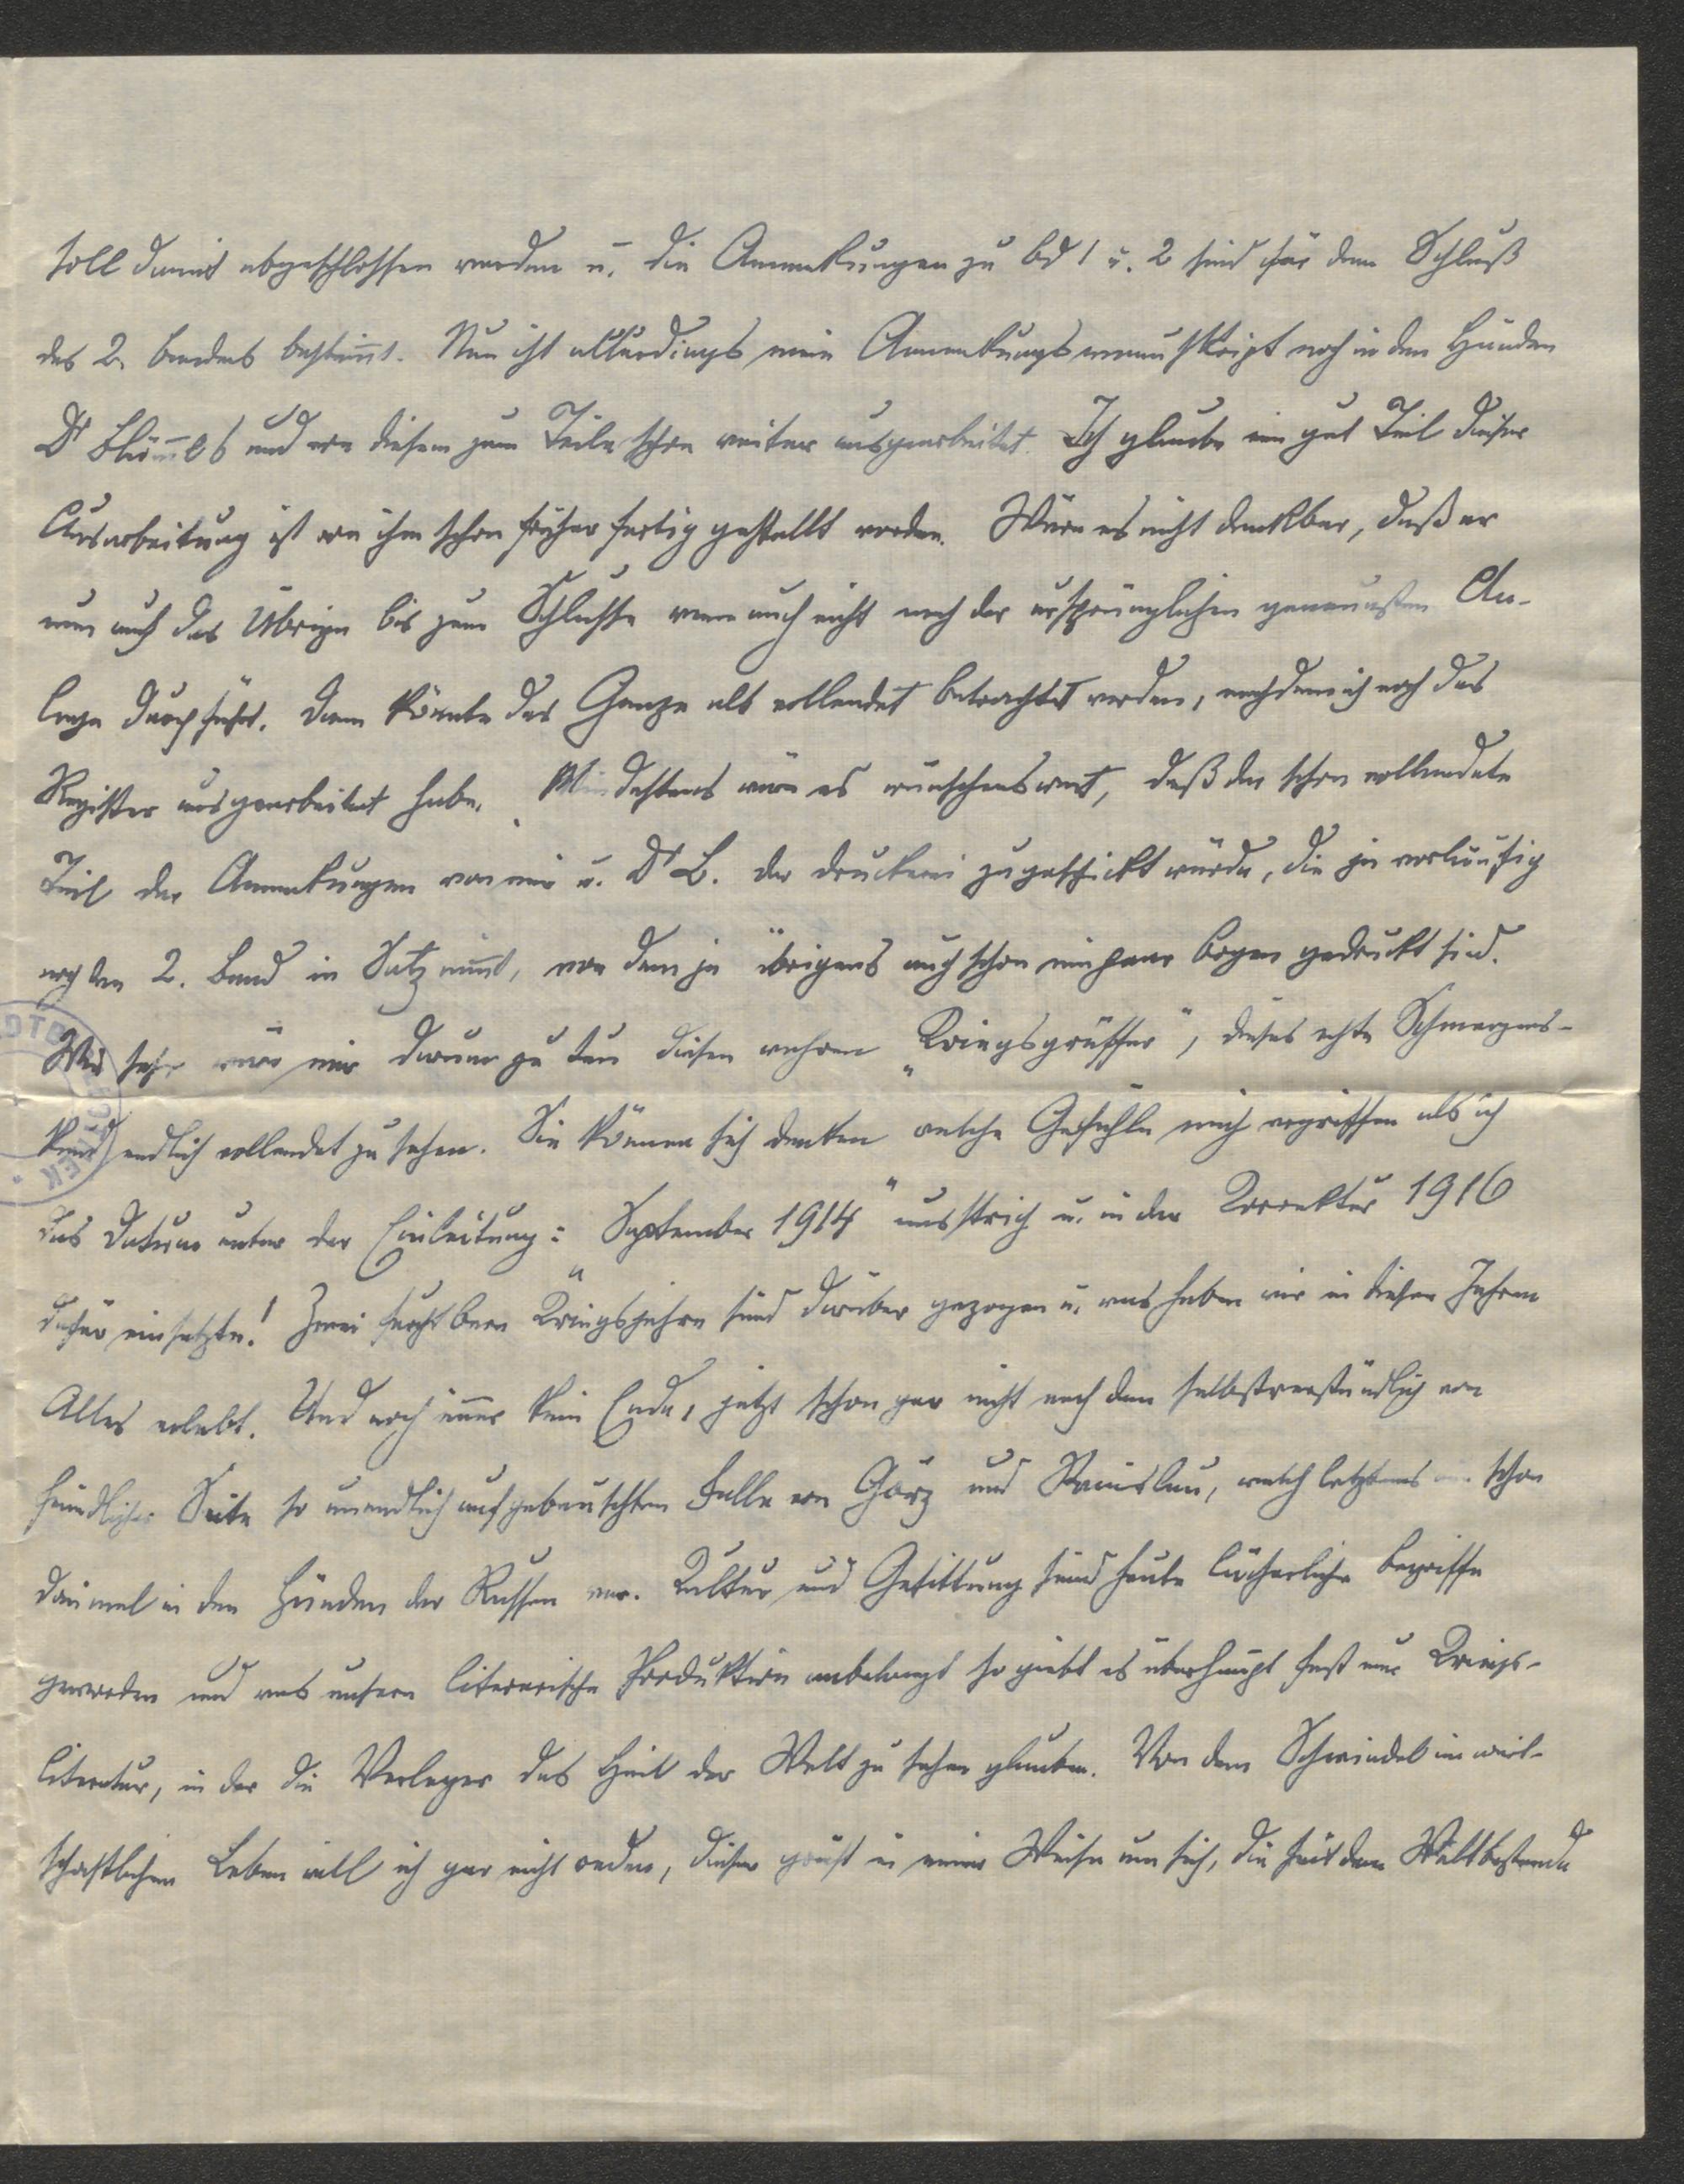 soll damit abgeschlossen werden u. die Anmerkungen zu Bd 1 u. 2 sind für den Schluß
des 2. Bandes bestim̅t. Nun ist allerdings mein Anmerkungsmanuskript noch in den Händen
Dr Blüm̅ls und von diesem zum Teile schon weiter ausgearbeitet. Ich glaube ein gut Teil dieser
Ausarbeitung ist von ihm schon früher fertig gestellt worden. Wäre es nicht denkbar, daß er
nun auch das Übrige bis zum Schlusse wenn auch nicht nach der ursprünglichen genauesten An-
lage durchführt. Dann könnte das Ganze als vollendet betrachtet werden, nachdem ich noch das
Register ausgearbeitet habe. Mindestens wäre es wünschenswert, daß der schon vollendete
Teil der Anmerkungen von mir u. Dr B. der Druckerei zugeschickt würde, die ja vorläufig
noch den 2. Band in Satz nim̅t, von dem ja übrigens auch schon ein paar Bogen gedruckt sind.
Wie sehr wäre mir darum zu tun diesen wahren „Kriegsgräffer“, dieses echte Schmerzens-
kind endlich vollendet zu sehen. Sie können sich denken welche Gefühle mich ergriffen als ich
das Datum unter der Einleitung: „September 1914“ ausstrich u. in der Korrektur 1916
dafür einsetzte! Zwei furchtbare Kriegsjahre sind darüber gezogen u. was haben wir in diesen Jahren
Alles erlebt. Und noch im̅er kein Ende, jetzt schon gar nicht nach dem selbstverständlich von
feindlicher Seite so unendlich aufgebauschten Falle von Görz und Stanislau, welch letzteres schon
dreimal in den Händen der Russen war. Kultur und Gesittung sind heute lächerliche Begriffe
geworden und was unsere literarische Produktion anbelangt so giebt es überhaupt fast nur Kriegs-
literatur, in der die Verleger das Heil der Welt zu sehen glauben. Von dem Schwindel im wirt-
schaftlichen Leben will ich gar nicht reden, dieser greift in einer Weise um sich, die seit dem Weltbestande